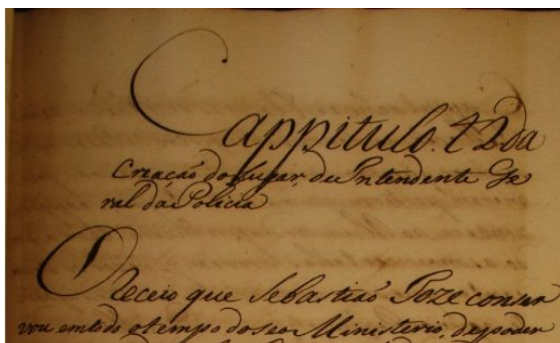 Cappitulo. 42 da
Creação do lugar, de Intendente Ge
ral da Policia
O Receio que Sebastião Joze conser
vou em todo o tempo do seo Ministerio, de poder